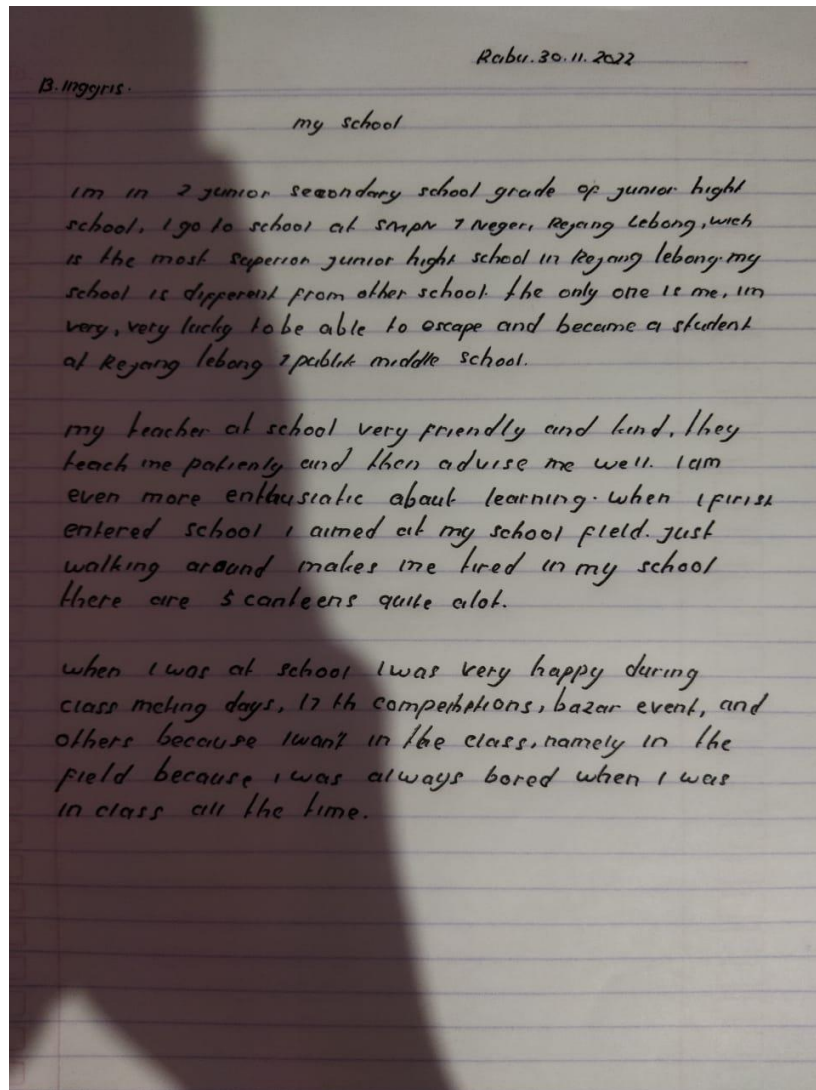 Rabu. 30. 11. 2022
B. Inggris.
my school
Im in 2 junior secondary school grade of junior hight
school. I go to school at SMPN 1 Negeri Rejang Lebong, wich
is the most superior junior hight school in Rejang lebong. my
school is different from other school. the only one is me, im
very, very lucky to be able to escape and became a student
at Rejang lebong 1 publik middle school.
my teacher at school very friendly and kind, they
teach me patienly and then advise me well. I am
even more enthusiatic about learning. when I
entered school I aimed at my school field. Just
walking around makes me tired in my school
there are 5 canteens quite alot.
when I was at school I was very happy during
class meting days, 17 th competitions, bazar event, and
others because I in the class, namely in the
field because I was always bored when I was
in class all the time.